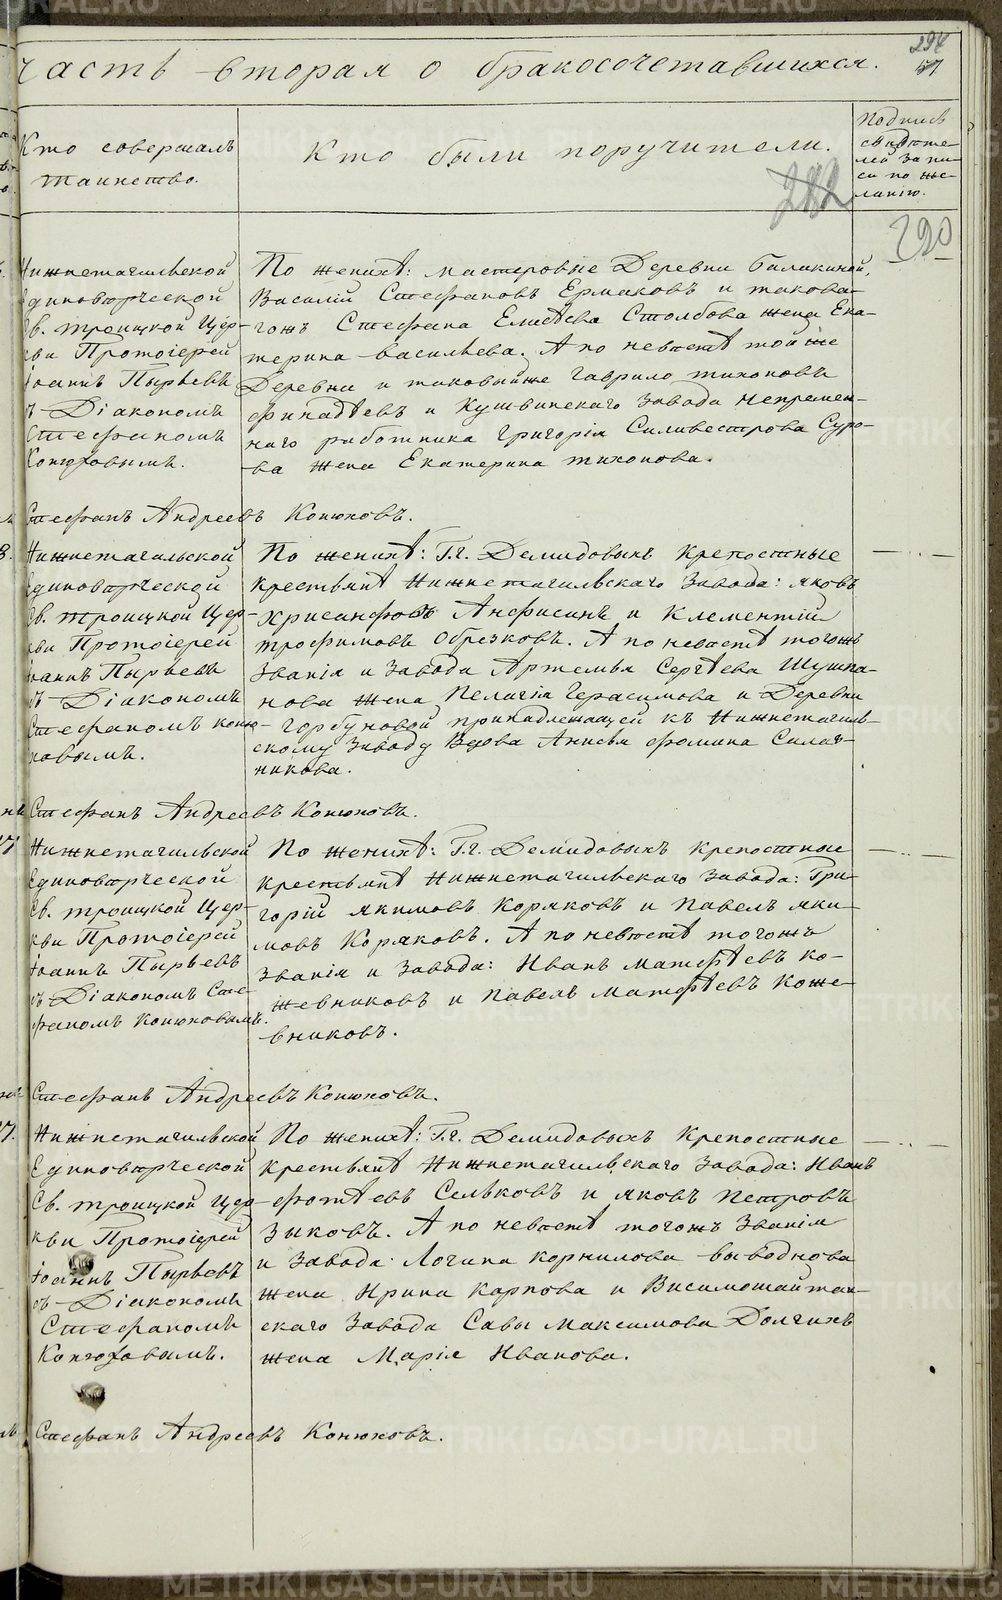 294
57
часть вторая о бракосочетавшихся.
Кто совершалъ
таинство.
Кто были поручители.
Подпись
свидѣте-
лей запи-
си по же-
ланію.
282
290
Нижнетагильской
Единовѣрческой
Св. троицкой Цер-
кви Протоіерей
Іоаннъ Пырьевъ
съ Діакономъ
Стефаномъ
Конюховымъ.
По женихѣ: мастеровые Деревни Балакиной,
Василій Стефановъ Ермаковъ и такова-
гожъ Стефана Елисѣева Столбова жена Ека-
терина Васильева. А по невѣстѣ той же
Деревни и таковыйже Гаврило тихоновъ
Финадѣевъ и Кушвинскаго завода непремен-
наго работника Григорія Силивестрова Суро-
ва жена Екатерина тихонова.
Стефанъ Андреевъ Конюховъ.
Нижнетагильской
Единовѣрческой
Св. троицкой Цер-
кви Протоіерей
Іоаннъ Пырьевъ
съ Діакономъ
Стефаномъ Коню-
ховымъ.
По женихѣ: Г.г. Демидовыхъ крепостные
крестьянѣ Нижнетагильскаго завода: яковъ
Хрисанфовъ Анфисинъ и Клементій
трофимовъ Обрезковъ. А по невѣстѣ тогожъ
званія и завода Артемья Сергѣева Шушпа-
нова жена Пелагія Герасимова и Деревни
Горбуновой принадлежащей къ Нижнетагиль-
скому заводу Вдова Анисья фомина Салат-
никова.
Стефанъ Андреевъ Конюховъ.
Нижнетагильской
Единовѣрческой
Св. троицкой Цер-
кви Протоіерей
Іоаннъ Пырьевъ
съ Діакономъ Сте-
фаномъ Конюховымъ.
По женихѣ: Г.г. Демидовыхъ крепостные
крестьянѣ Нижнетагильскаго завода: Гри-
горій якимовъ Коряковъ и Павелъ яки-
мовъ Коряковъ. А по невѣстѣ тогожъ
званія и завода: Иванъ Матфѣевъ Ко-
жевниковъ и Павелъ Матфѣевъ Коже-
вниковъ.
Стефанъ Андреевъ Конюховъ.
Нижнетагильской
Единовѣрческой
Св. троицкой Цер-
кви Протоіерей
Іоаннъ Пырьевъ
съ Діакономъ
Стефаномъ
Конюховымъ.
По женихѣ: Г.г. Демидовыхъ Крепостные
крестьянѣ Нижнетагильскаго завода: Иванъ
фотѣевъ Сельковъ и яковъ Петровъ
Зыковъ. А по невѣстѣ тогожъ званія
и завода Логина Корнилова выводнова
жена Ирина Карпова и Висимошайтан-
скаго завода Савы Максимова Долгихъ
жена Марія Иванова.
Стефанъ Андреевъ Конюховъ.